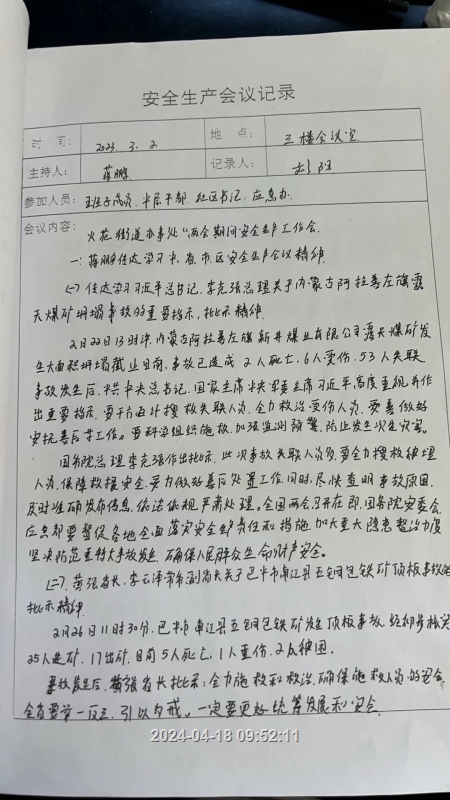 安全生产会议记录
时 间: 2023. 3. 2 地 点: 三楼会议室
主持人: 蒋鹏 记录人:
参加人员: 班子成员、中层干部、社区书记、应急办.
会议内容: 火花街道办事处"两会期间安全生产工作会.
一. 蒋鹏传达学习中、省、市、区安全生产会议精神.
(一) 传达学习习近平总书记、李克强总理关于内蒙古阿拉善左旗露
天煤矿坍塌事故的重要指示、批示精神.
2月22日13时许,内蒙古阿拉善左旗新井煤业有限公司露天煤矿发
生大面积坍塌截止目前,事故已造成2人死亡,6人受伤,53人失联
事故发生后,中共中央总书记、国家主席中央军委主席习近平高度重视并作
出重要指示,要千方百计搜救失联人员,全力救治受伤人员,妥善做好
安抚善后等工作。要科学组织施救,加强监测预警,防止发生次生灾害。
国务院总理李克强作出批示,此次事故失联人员多,要全力搜救被埋
人员,保障救援安全,努力做好善后处置工作,同时,尽快查明事故原因,
及时准确发布信息,依法依规严肃处理。全国两会召开在即,国务院安委会,
应急部要督促各地全面落实安全生产责任和措施,加大重大隐患整治力度
坚决防范重特大事故发生,确保人民群众生命财产安全。
(二)、黄强省长、李云泽常务副省长关于巴中市南江县五铜包铁矿顶板事故的
批示精神
2月26日11时30分,巴中市南江县五铜包铁矿发生顶板事故,经初步核实
25人进矿,17出矿,目前5人死亡,1人重伤,2人被困。
事故发生后,黄强省长批示:全力施救和救治,确保施救人员的安全,
全省要举一反三,引以为戒。一定要更好统筹发展和安全
2024-04-18 09:52:11